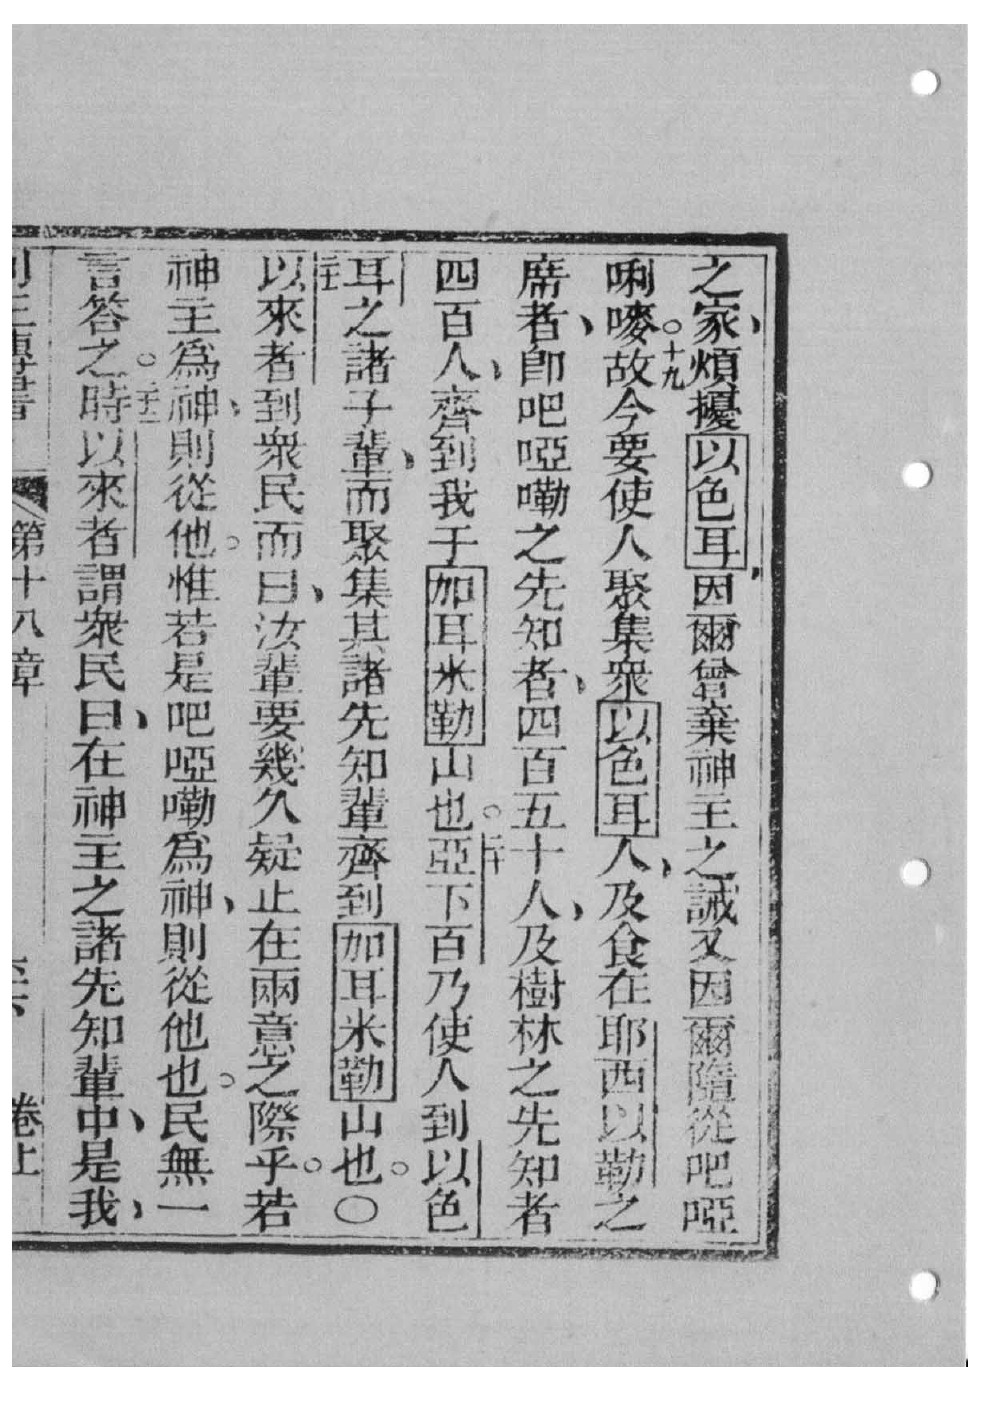 之家、煩擾以色耳、因爾曾棄神主之誡又因爾隨從吧啞
唎嘜。十九故今要使人聚集衆以色耳人、及食在耶西以勒之
席者、卽吧啞嘞之先知者、四百五十人、及樹林之先知者
四百人、齊到我于加耳米勒山也。二十亞下百乃使人到以色
耳之諸子輩、而聚集其諸先知輩齊到加耳米勒山也。○
二十一以來者到衆民而曰、汝輩要幾久疑止在兩意之際乎。若
神主爲神、則從他。惟若是吧啞嘞爲神、則從他也。民無一
言答之。二十二時以來者謂衆民曰、在神主之諸先知輩中、是我、
列王傳書 第十八章 卷上